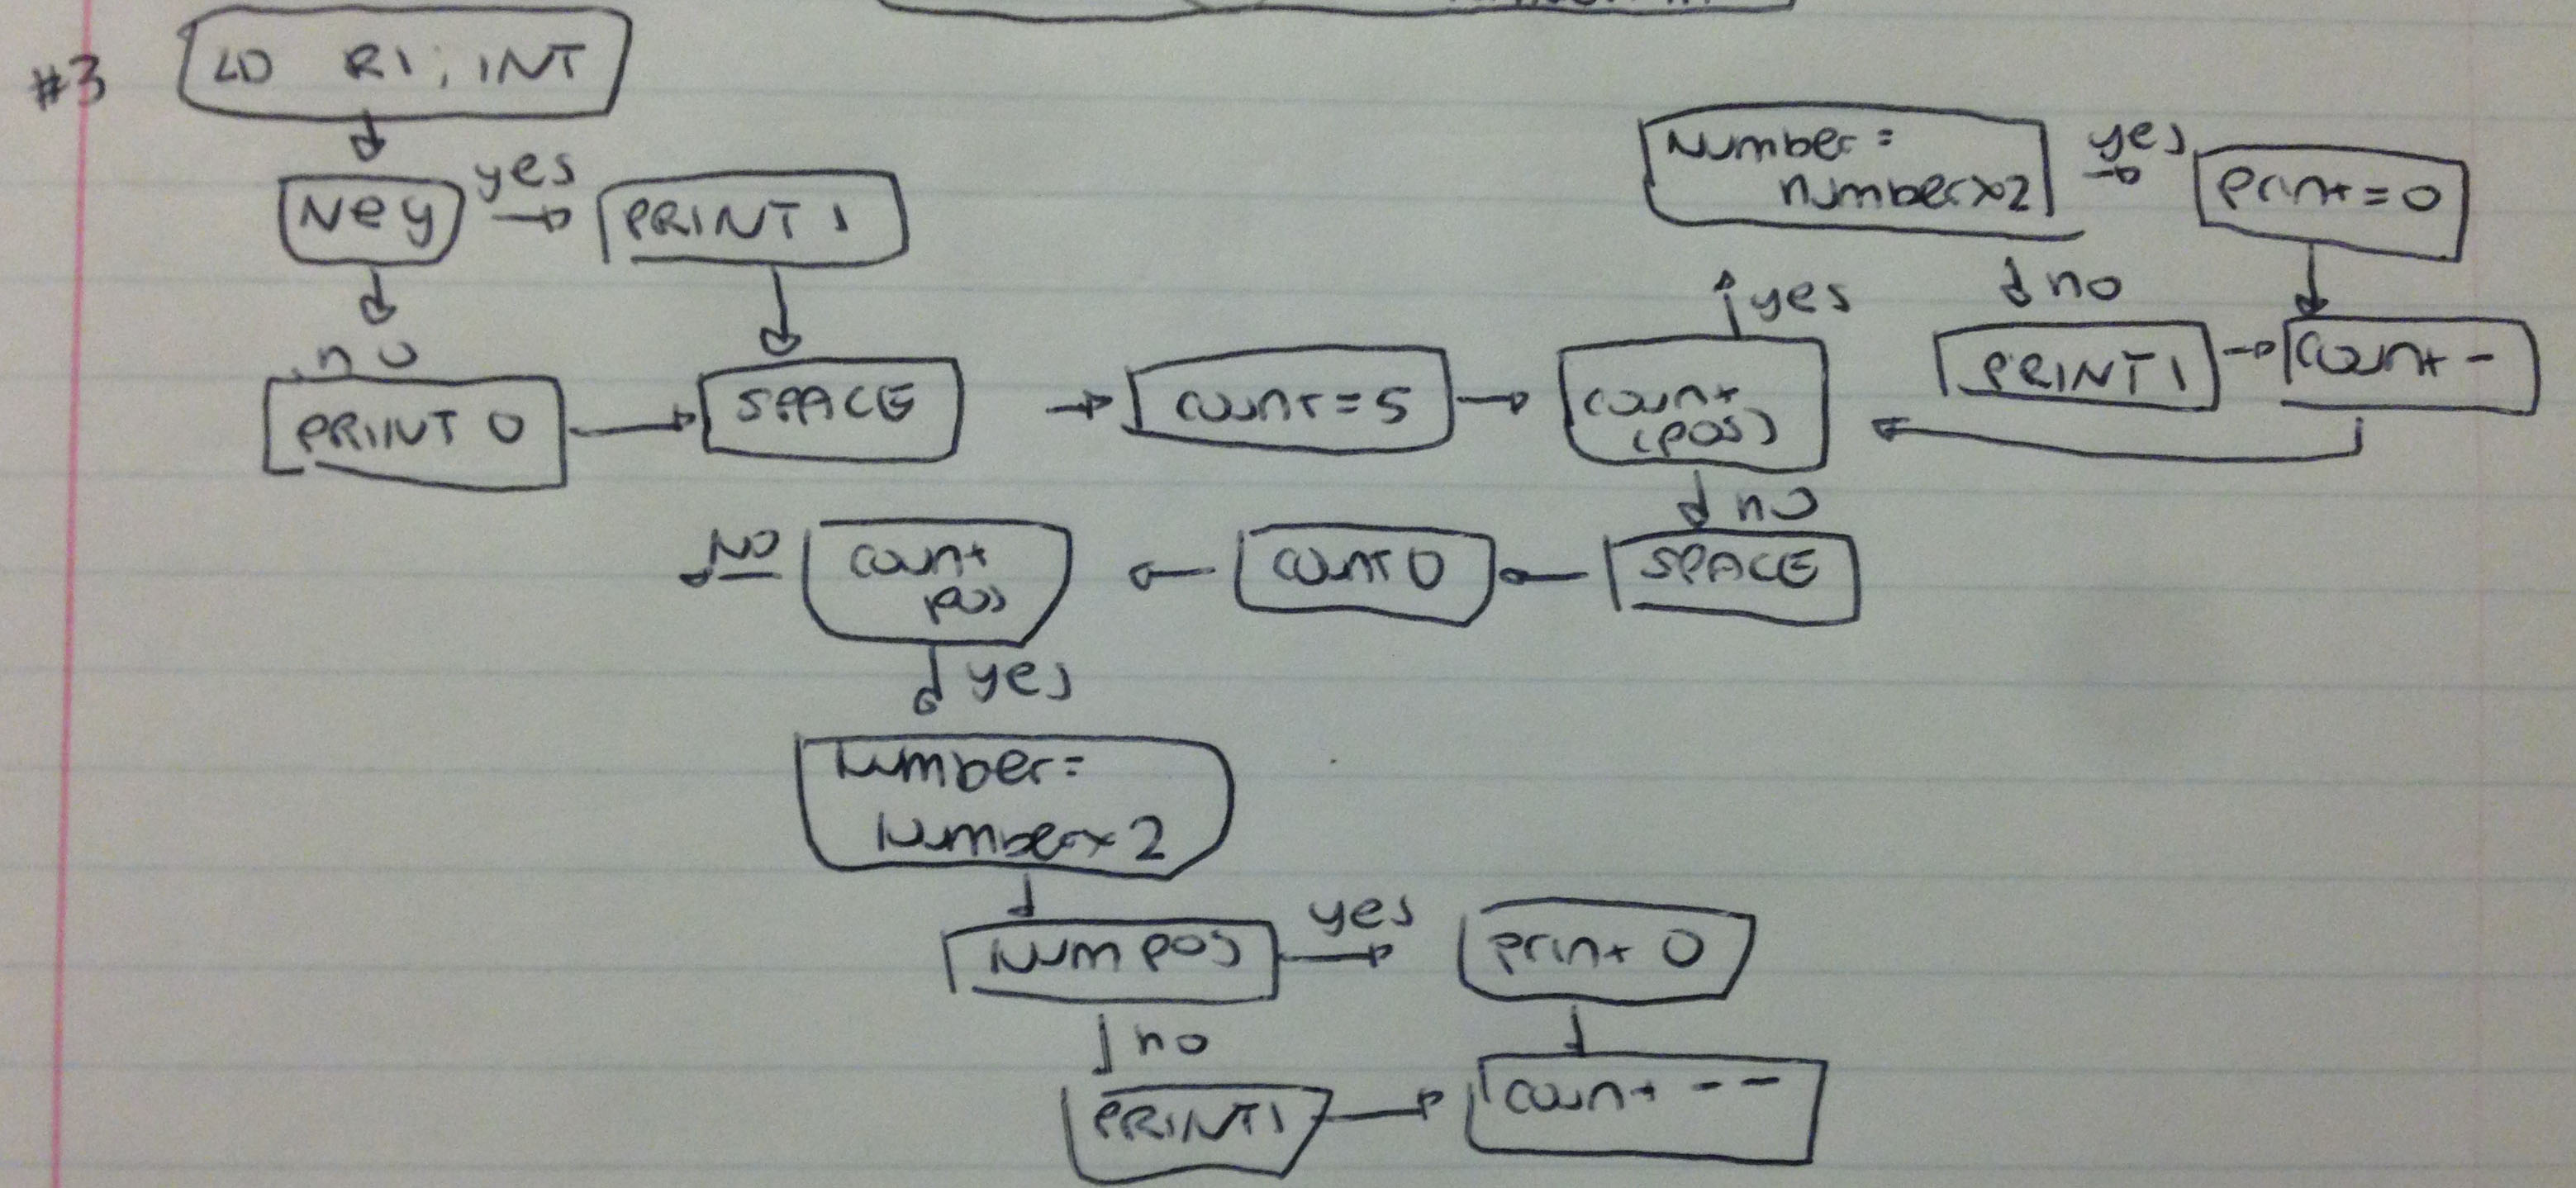 #3
LD R1, INT
Neg
yes
PRINT 1
no
PRIINT 0
SPACE
count = 5
count
(pos)
yes
Number =
number x2
yes
print = 0
no
PRINT 1
count -
no
SPACE
count 0
count
pos
NO
yes
Number =
Number x 2
Num pos
yes
print 0
no
PRINT 1
count --